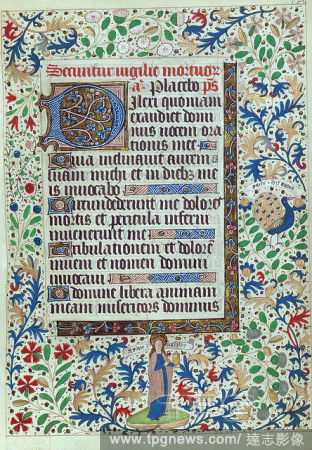 Secuntur vigilie mortuor
a. Placebo ps
Dilexi quoniam
exaudiet domi
nus vocem ora
tionis mee
Quia inclinavit aurem
suam michi et in dieb; me
is invocabo
Circumdederunt me dolores
mortis et pericula inferni
invenerunt me
Tribulationem et dolore
inveni et nomen domini
invocavi
O domine libera animam
meam misericors dominus
www.tpgnews.com/達志影像